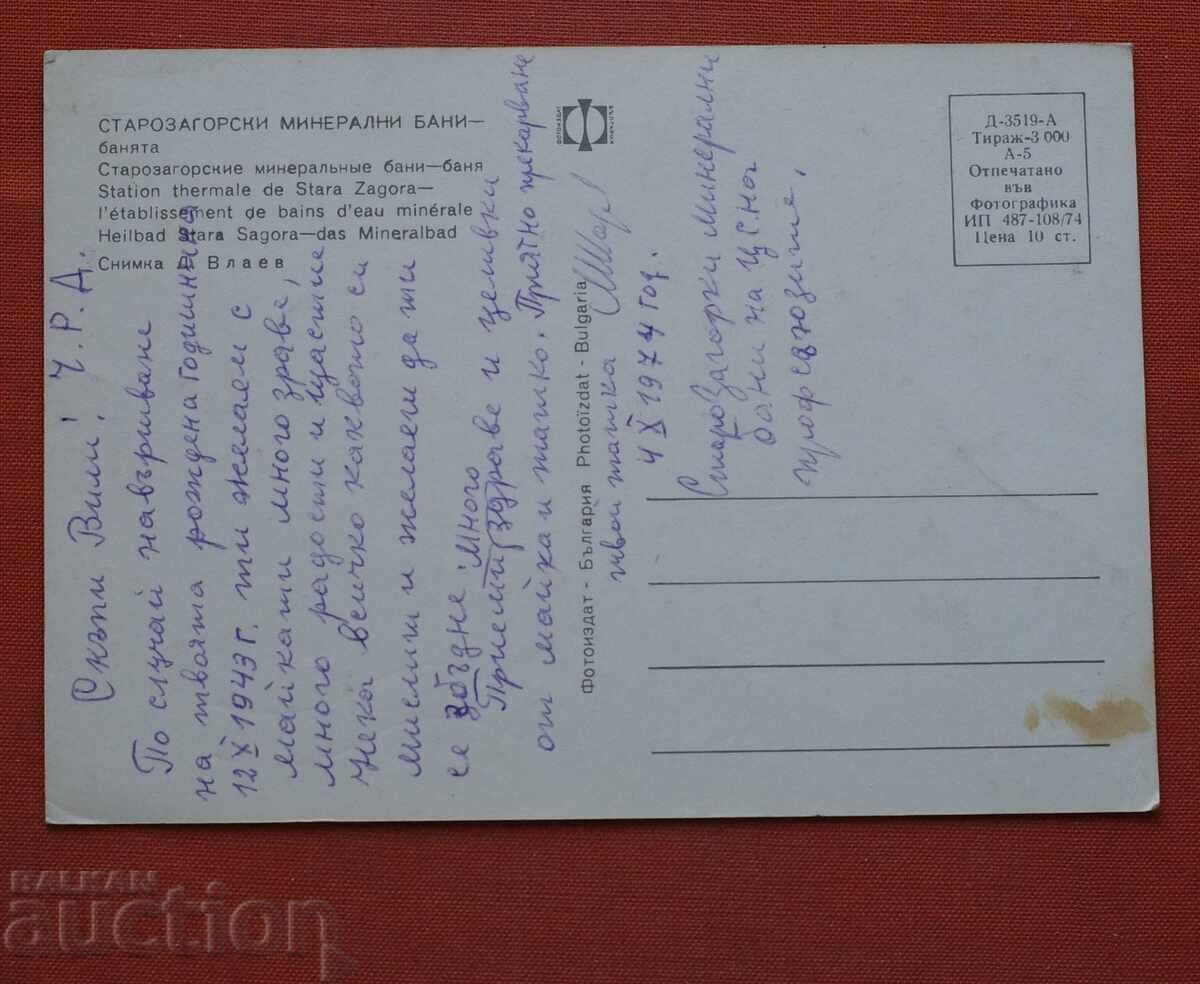 СТАРОЗАГОРСКИ МИНЕРАЛНИ БАНИ—
банята
Старозагорские минеральные бани—баня
Station thermale de Stara Zagora—
l'établissement de bains d'eau minérale
Heilbad Stara Sagora—das Mineralbad
Снимка Д. Влаев
ФОТОИЗДАТ
Д-3519-А
Тираж-3 000
А-5
Отпечатано
във
Фотографика
ИП 487-108/74
Цена 10 ст.
Фотоиздат - България Photoïzdat - Bulgaria
Скъпи Вили! Ч.Р.Д.
По случай навършване
на твоята рождена годишнина
12 X 1943 г. ти желаем с
майка ти много здраве,
много радост и щастие
Нека всичко каквото си
мислиш и желаеш да ти
се сбъдне.
Приеми много здраве и целувки
от майка и татко. Приятно прекарване
твой татко
4 X 1974 год.
Старозагорки Минерални
бани на ЦС на
профсъюзите.
BALKAN
auction